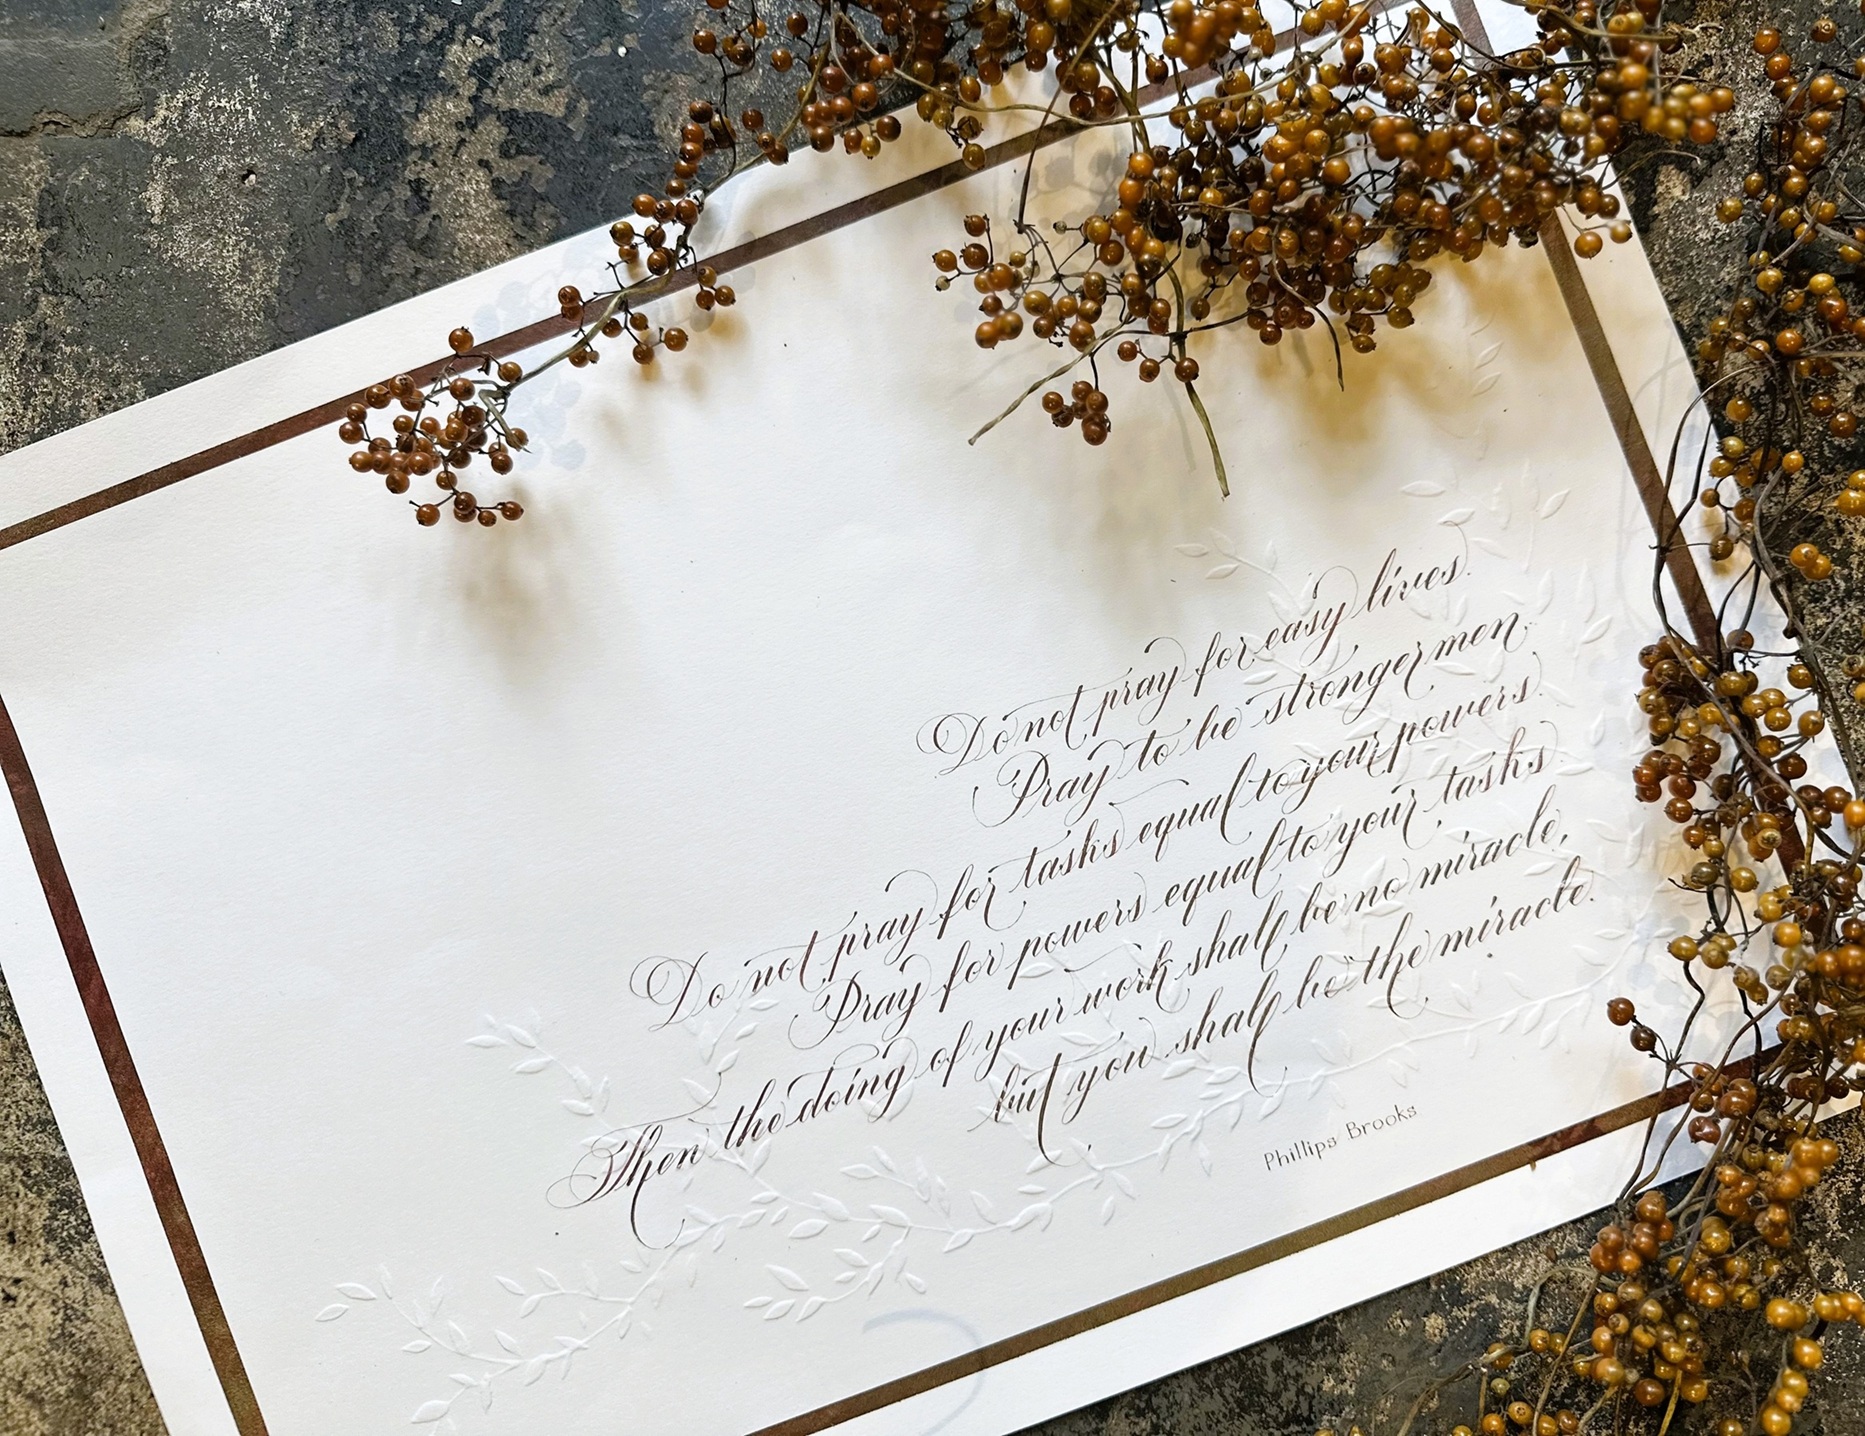 Do not pray for easy lives.
Pray to be stronger men.
Do not pray for tasks equal to your powers.
Pray for powers equal to your tasks.
Then the doing of your work shall be no miracle,
but you shall be the miracle.
Phillips Brooks